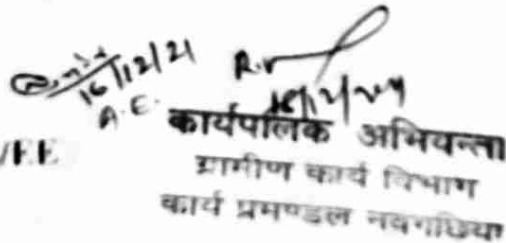 16/12/21
A.E.
/E.E
कार्यपालक अभियन्ता
ग्रामीण कार्य विभाग
कार्य प्रमण्डल नवगछिया